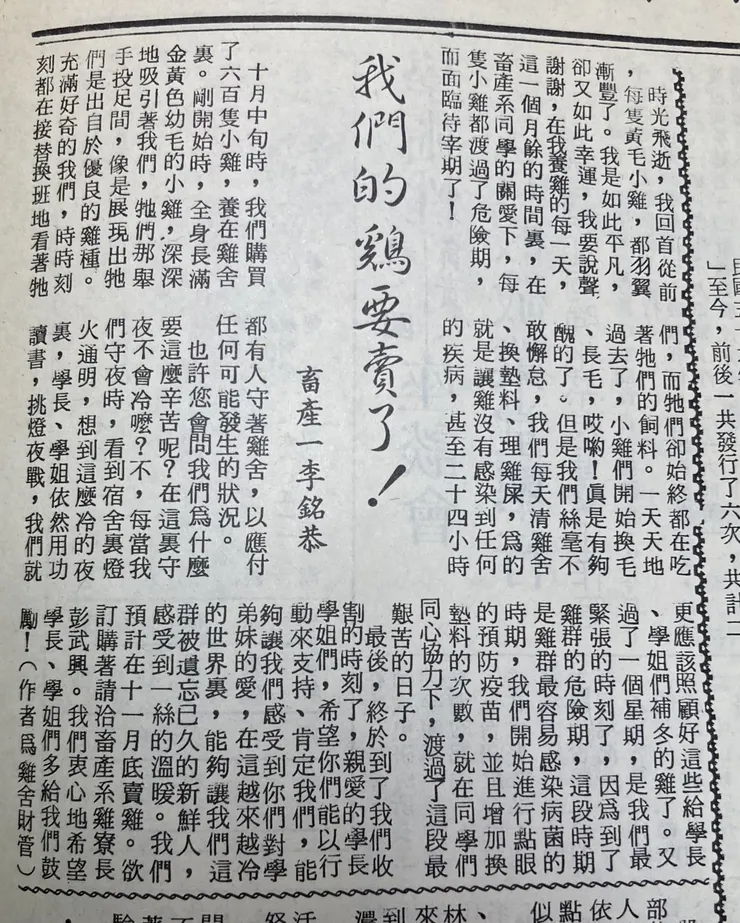 我們的鷄要賣了!
畜產一李銘恭
時光飛逝,我回首從前
,每隻黃毛小雞,都羽翼
漸豐了。我是如此平凡,
卻又如此幸運,我要說聲
謝謝,在我養雞的每一天,
這一個月餘的時間裏,在
畜產系同學的關愛下,每
隻小雞都渡過了危險期,
而面臨待宰期了!
十月中旬時,我們購買
了六百隻小雞,養在雞舍
裏。剛開始時,全身長滿
金黃色幼毛的小雞,深深
地吸引著我們,牠們那舉
手投足間,像是展現出牠
們是出自於優良的雞種。
充滿好奇的我們,時時刻
刻都在接替換班地看著牠
們,而牠們卻始終都在吃
著牠們的飼料。一天天地
過去了,小雞們開始換毛
、長毛,哎喲!眞是有夠
醜的了。但是我們絲毫不
敢懈怠,我們每天清雞舍
、換墊料、理雞屎,爲的
就是讓雞沒有感染到任何
的疾病,甚至二十四小時
都有人守著雞舍,以應付
任何可能發生的狀況。
也許您會問我們爲什麼
要這麼辛苦呢?在這裏守
夜不會冷嚒?不,每當我
們守夜時,看到宿舍裏燈
火通明,想到這麼冷的夜
裏,學長、學姐依然用功
讀書,挑燈夜戰,我們就
更應該照顧好這些給學長
、學姐們補冬的雞了。又
過了一個星期,是我們最
緊張的時刻了,因爲到了
雞群的危險期,這段時期
是雞群最容易感染病菌的
時期,我們開始進行點眼
的預防疫苗,並且增加換
墊料的次數,就在同學們
同心協力下,渡過了這段最
艱苦的日子。
最後,終於到了我們收
割的時刻了,親愛的學長
學姐們,希望你們能以行
動來支持、肯定我們,能
夠讓我們感受到你們對學
弟妹的愛,在這越來越冷
的世界裏,能夠讓我們這
群被遺忘已久的新鮮人,
感受到一絲的溫暖。我們
預計在十一月底賣雞。欲
訂購著請洽畜產系雞寮長
彭武興。我們衷心地希望
學長、學姐們多給我們鼓
勵!(作者爲雞舍財管)
」至今,前後一共發行了六次,共計二